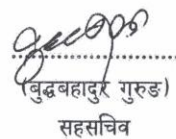 (बुद्धबहादुर गुरुङ)
सहसचिव